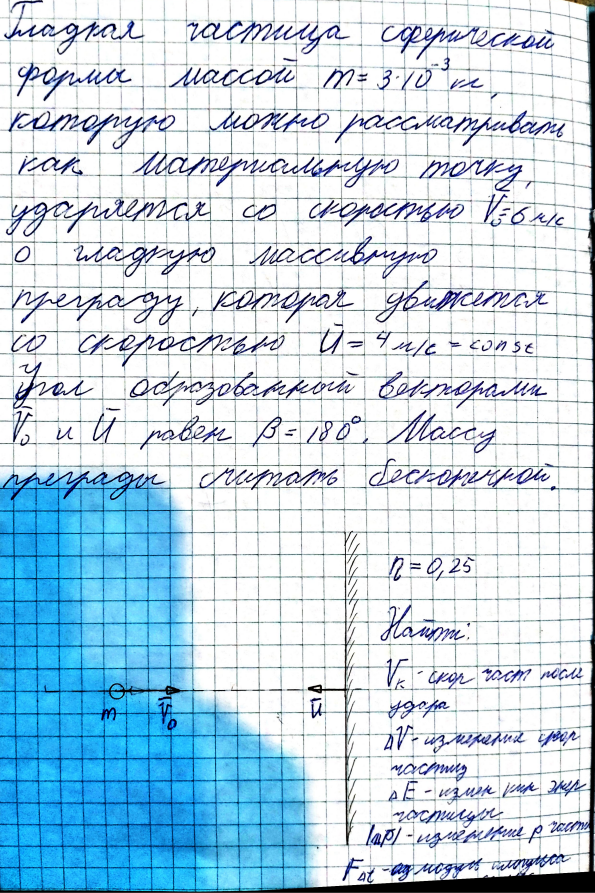 Гладкая частица сферической
формы массой m = 3·10⁻³ кг,
которую можно рассматривать
как материальную точку,
ударяется со скоростью V̄₀=6 м/с
о гладкую массивную
преграду, которая движется
со скоростью Ū = 4 м/с = const
Угол образованный векторами
V̄₀ и Ū равен β = 180°. Массу
преграды считать бесконечной.
η = 0,25
Найти:
Vк - скор част после
удара
ΔV - изменение скор
частиц
ΔE - измен кин энер
частицы
|Δp| - изменение p части
FΔt - модуль импульса
m
V̄₀
Ū